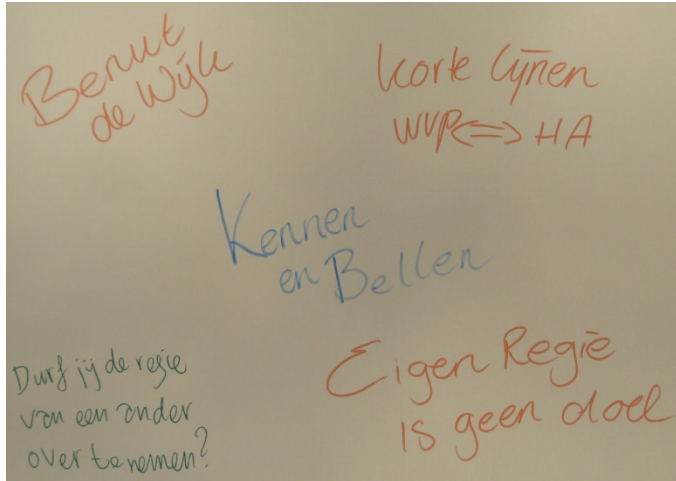 Benut
de Wijk
korte lijnen
WVP <=> HA
Kennen
en Bellen
Durf jij de regie
van een ander
over te nemen?
Eigen Regie
is geen doel